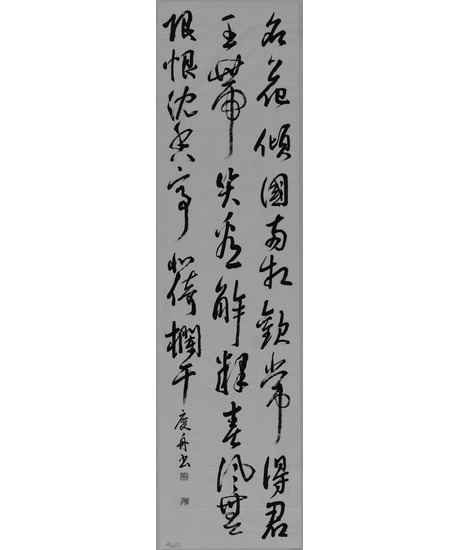 名花傾國兩相歡常得君
王帶笑看解釋春風無
限恨沈香亭北倚欄干
舟书